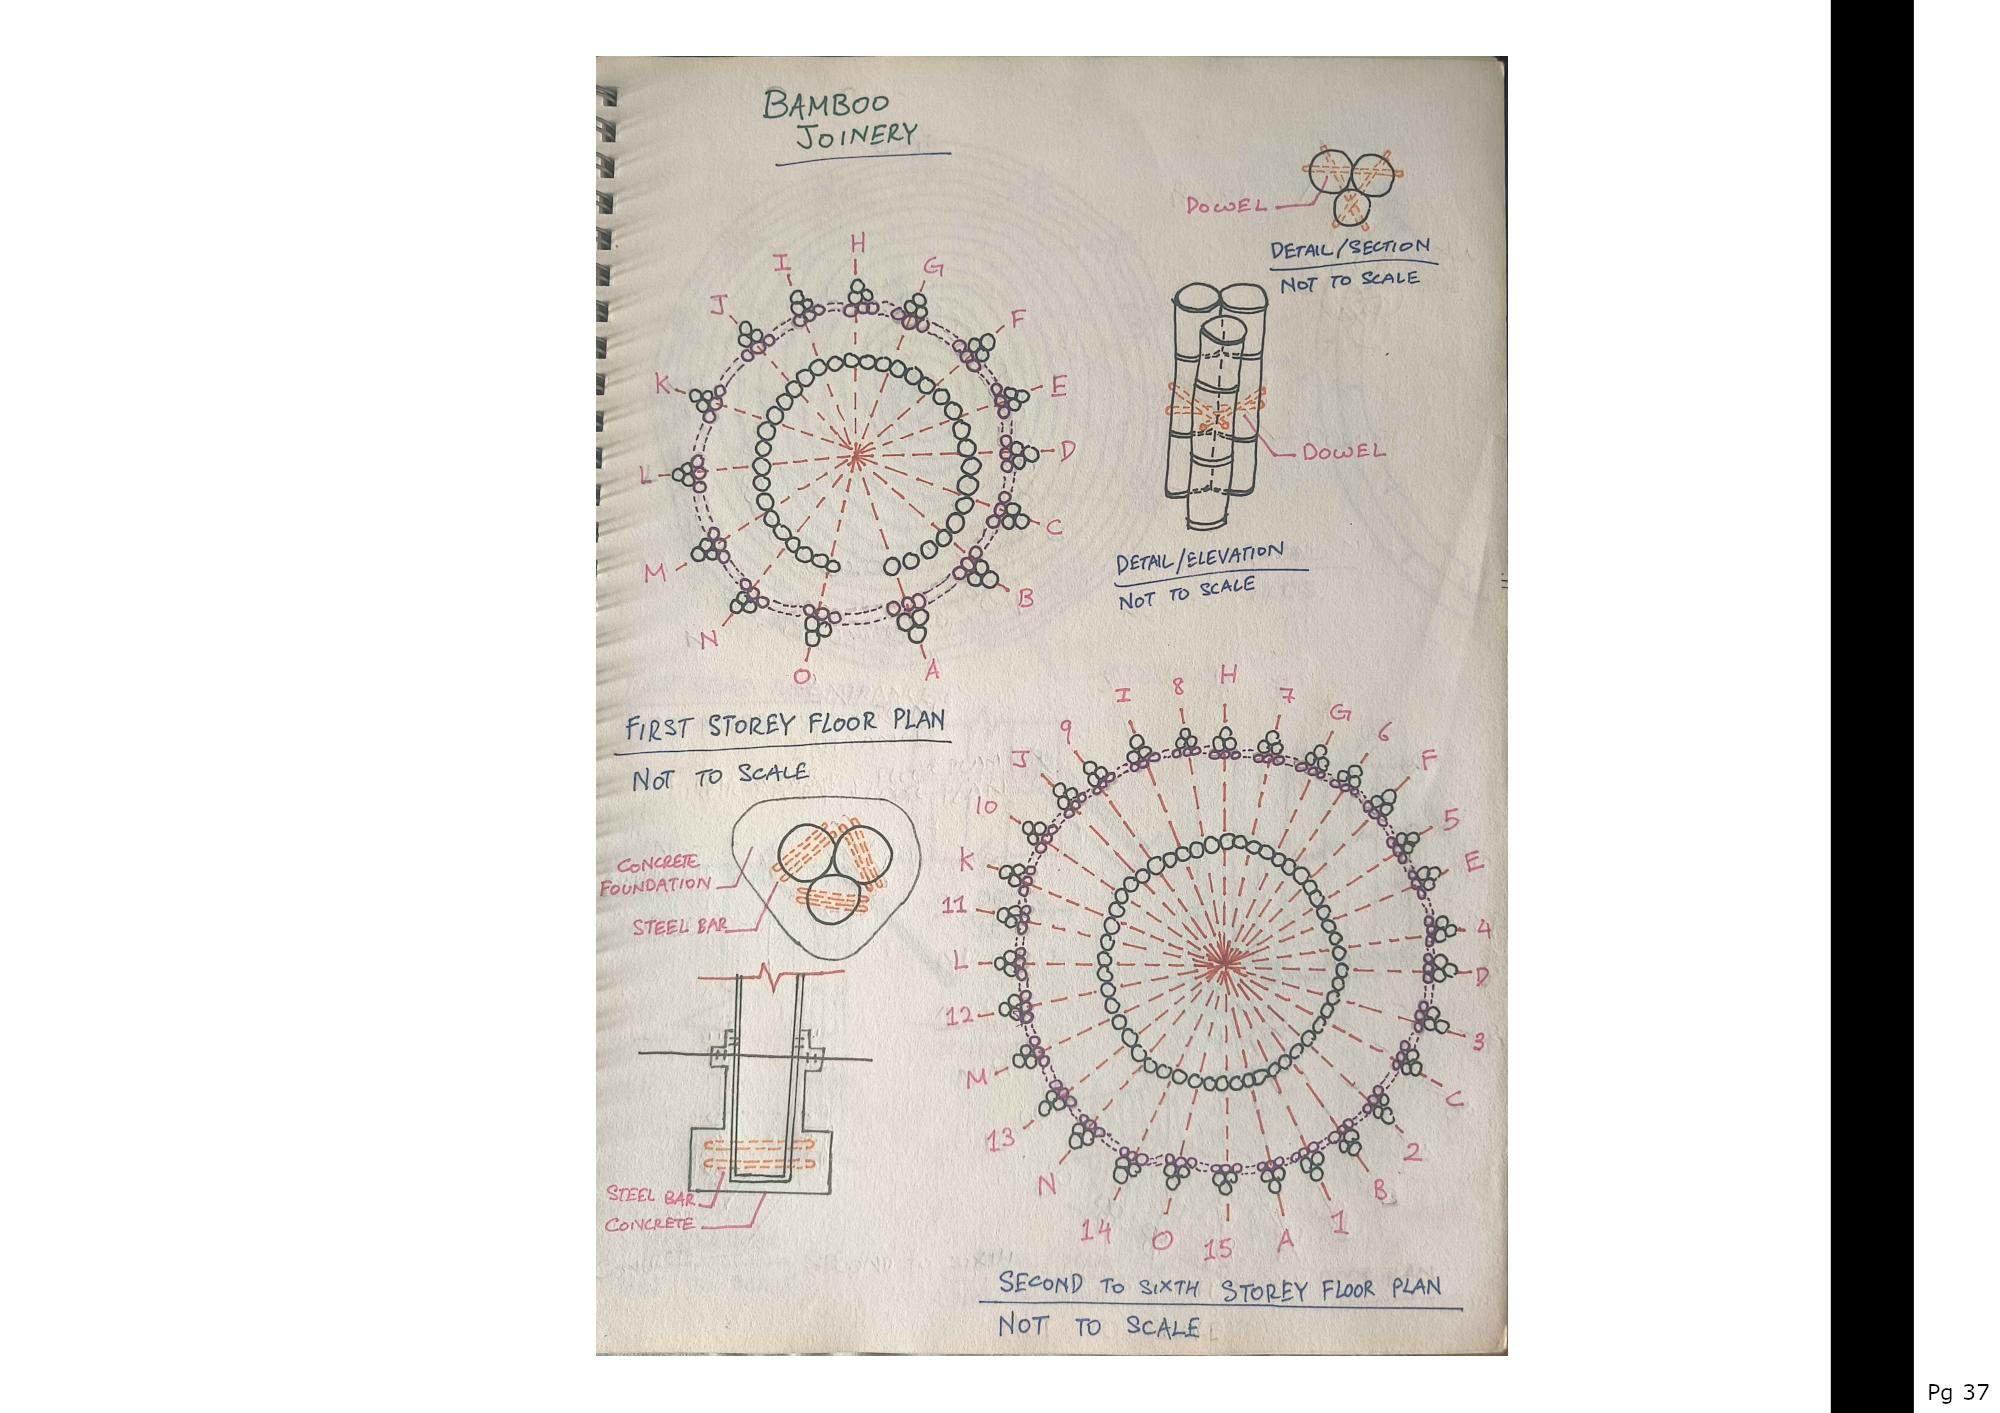 BAMBOO
JOINERY
DOWEL
DETAIL/SECTION
NOT TO SCALE
H
I
G
J
F
K
E
L
D
C
M
B
N
O
A
DOWEL
DETAIL/ELEVATION
NOT TO SCALE
FIRST STOREY FLOOR PLAN
NOT TO SCALE
CONCRETE
FOUNDATION
STEEL BAR
STEEL BAR
CONCRETE
H
8
7
I
G
9
6
J
F
10
5
K
E
11
4
L
D
12
3
M
C
13
2
N
B
14
1
O
15
A
SECOND TO SIXTH STOREY FLOOR PLAN
NOT TO SCALE
Pg 37